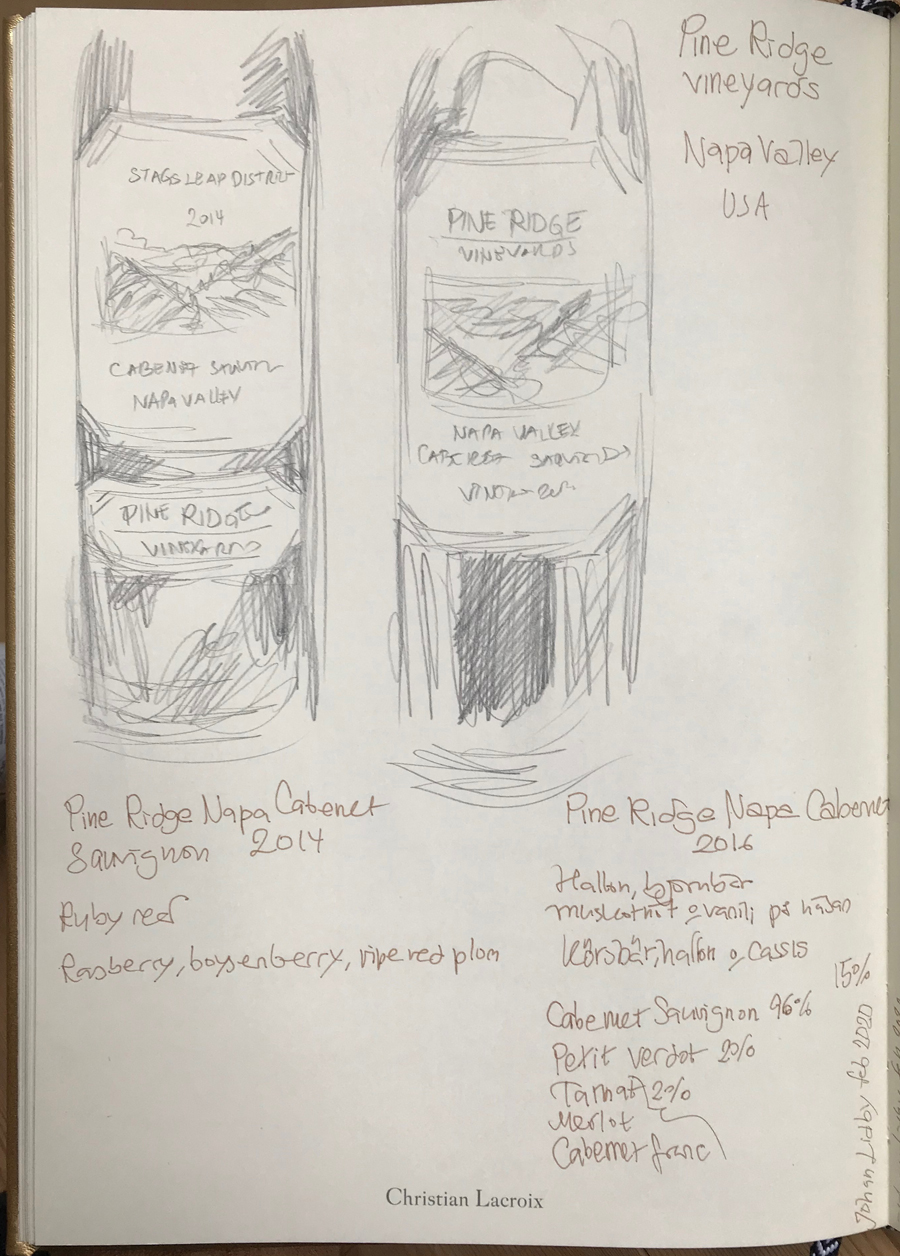 Pine Ridge
vineyards
Napa Valley
USA
STAGS LEAP DISTRICT
2014
NAPA VALLEY
PINE RIDGE
VINEYARDS
PINE RIDGE
VINEYARDS
NAPA VALLEY
Pine Ridge Napa Cabernet
Sauvignon 2014
Ruby red
Rasberry, boysenberry, ripe red plom
Pine Ridge Napa Cabernet
2016
Hallon, björnbär
muskotnöt o vanilj på näsan
körsbär, hallon o, cassis
15%
Cabernet Sauvignon 96%
Petit verdot 2%
Tannat 2%
Merlot
Cabernet franc
Johan Lidby feb 2020
Christian Lacroix